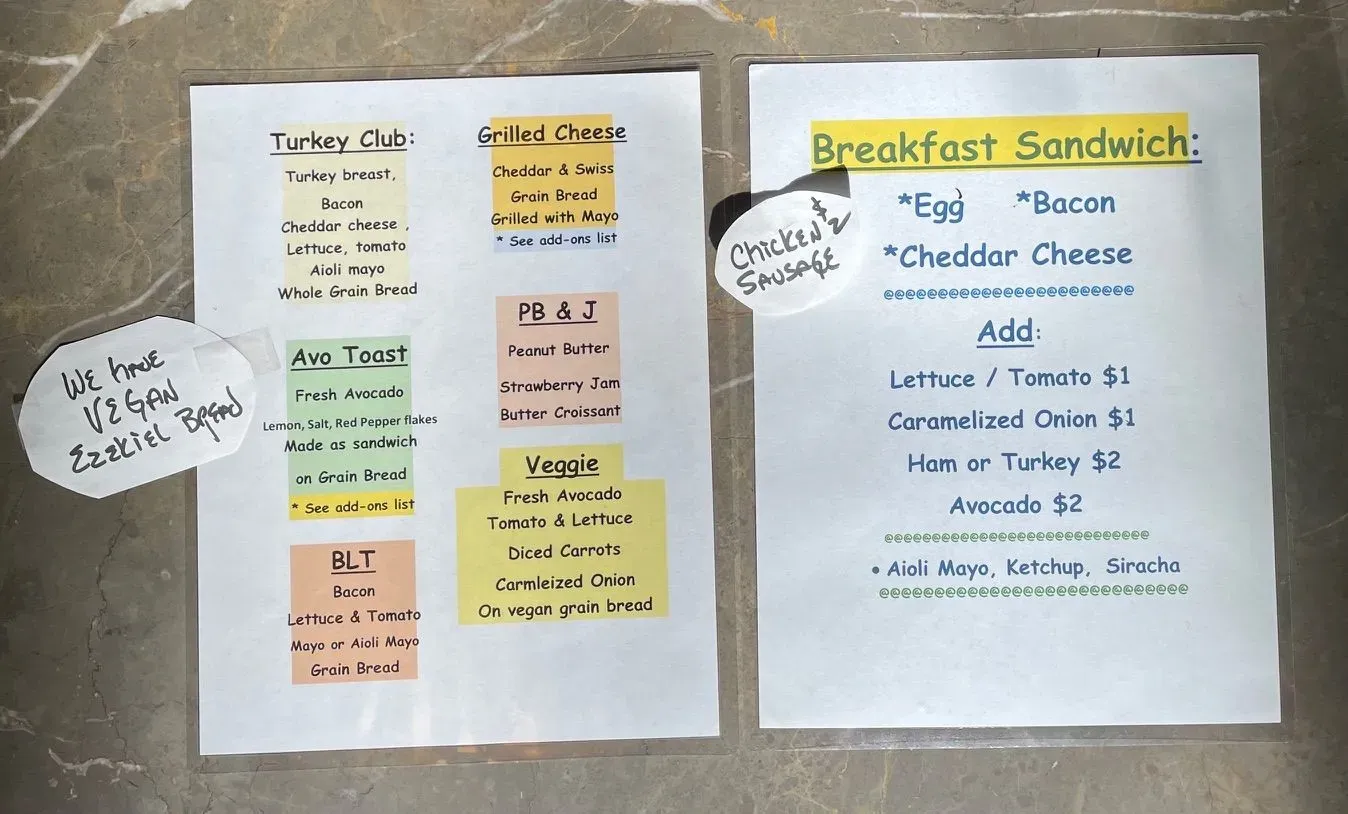 WE HAVE
VEGAN
EZEKIEL BREAD
Turkey Club:
Turkey breast,
Bacon
Cheddar cheese ,
Lettuce, tomato
Aioli mayo
Whole Grain Bread
Avo Toast
Fresh Avocado
Lemon, Salt, Red Pepper flakes
Made as sandwich
on Grain Bread
* See add-ons list
BLT
Bacon
Lettuce & Tomato
Mayo or Aioli Mayo
Grain Bread
Grilled Cheese
Cheddar & Swiss
Grain Bread
Grilled with Mayo
* See add-ons list
PB & J
Peanut Butter
Strawberry Jam
Butter Croissant
Veggie
Fresh Avocado
Tomato & Lettuce
Diced Carrots
Carmleized Onion
On vegan grain bread
CHICKEN $2
SAUSAGE
Breakfast Sandwich:
*Egg *Bacon
*Cheddar Cheese
@@@@@@@@@@@@@@@@@@@@@@
Add:
Lettuce / Tomato $1
Caramelized Onion $1
Ham or Turkey $2
Avocado $2
@@@@@@@@@@@@@@@@@@@@@@@@@
• Aioli Mayo, Ketchup, Siracha
@@@@@@@@@@@@@@@@@@@@@@@@@@